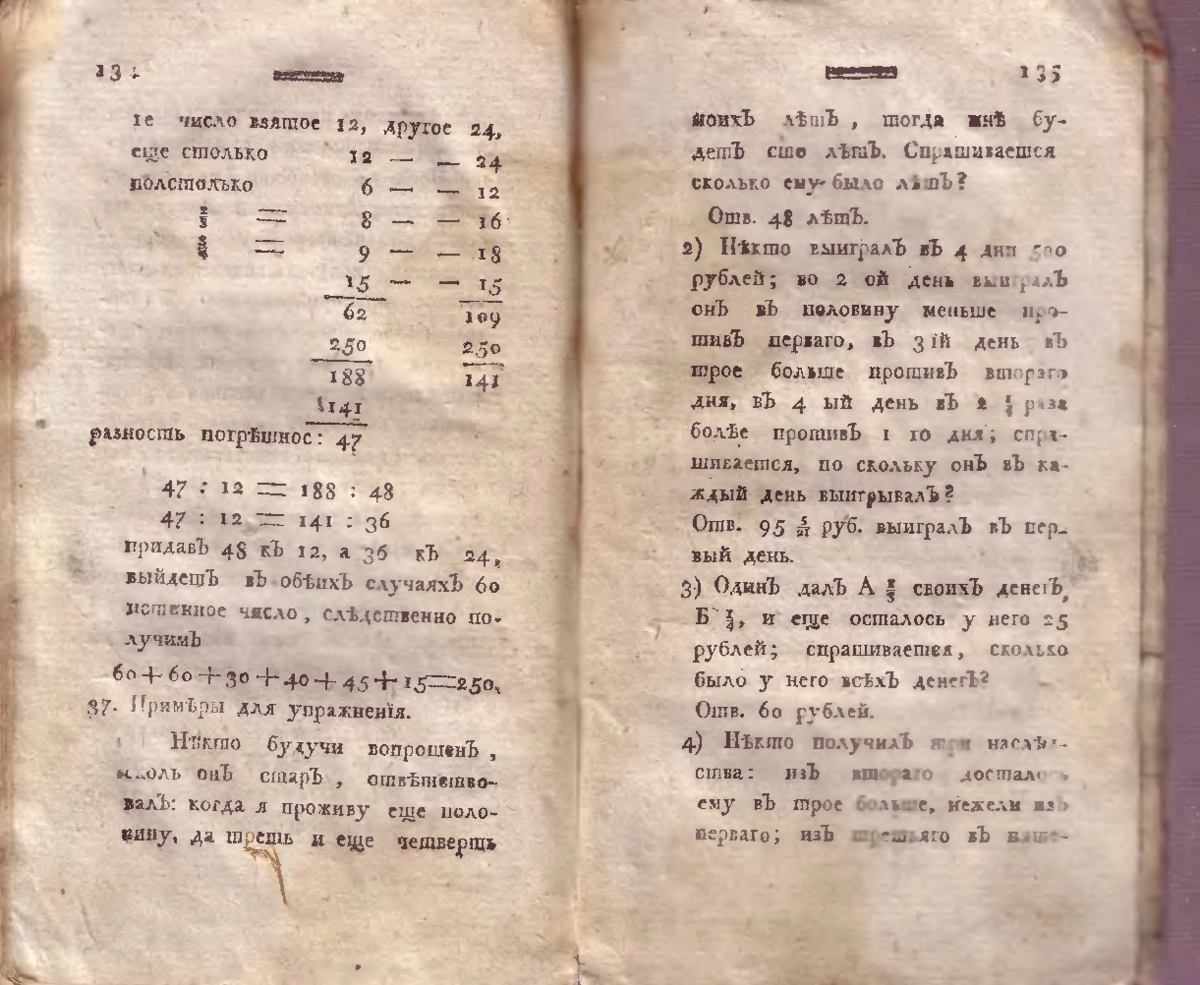 134
1е число взятое 12, другое 24,
еще столько 12 — — 24
полстолько 6 — — 12
⅔ = 8 — — 16
¾ = 9 — — 18
15 — — 15
62 109
250 250
188 141
141
разность погрѣшнос: 47
47 : 12 = 188 : 48
47 : 12 = 141 : 36
придавЪ 48 кЪ 12, а 36 кЪ 24,
выйдетЪ вЪ обѣихЪ случаяхЪ 60
истенное число, слѣдственно по-
лучимЪ
60 + 60 + 30 + 40 + 45 + 15 = 250,
37. Примѣры для упражненія.
Нѣкто будучи вопрошенЪ,
сколь онЪ старЪ, отвѣтство-
валЪ: когда я проживу еще поло-
вину, да треть и еще четверть
135
моихЪ лѣтЪ, тогда мнѣ бу-
детЪ сто лѣтЪ. Спрашивается
сколько ему было лѣтЪ?
Отв. 48 лѣтЪ.
2) Нѣкто выигралЪ вЪ 4 дни 500
рублей; во 2 ой день выигралЪ
онЪ вЪ половину меньше про-
тивЪ перваго, вЪ 3 ій день вЪ
трое больше противЪ втораго
дня, вЪ 4 ый день вЪ 2 ¼ раза
болѣе противЪ 1 го дня; спра-
шивается, по скольку онЪ вЪ ка-
ждый день выигрывалЪ?
Отв. 95 5/21 руб. выигралЪ вЪ пер-
вый день.
3) ОдинЪ далЪ А ⅓ своихЪ денегЪ,
Б ¼, и еще осталось у него 25
рублей; спрашивается, сколько
было у него всѣхЪ денегЪ?
Отв. 60 рублей.
4) Нѣкто получилЪ три наслѣд-
ства: изЪ втораго досталось
ему вЪ трое больше, нежели изЪ
перваго; изЪ третьяго вЪ